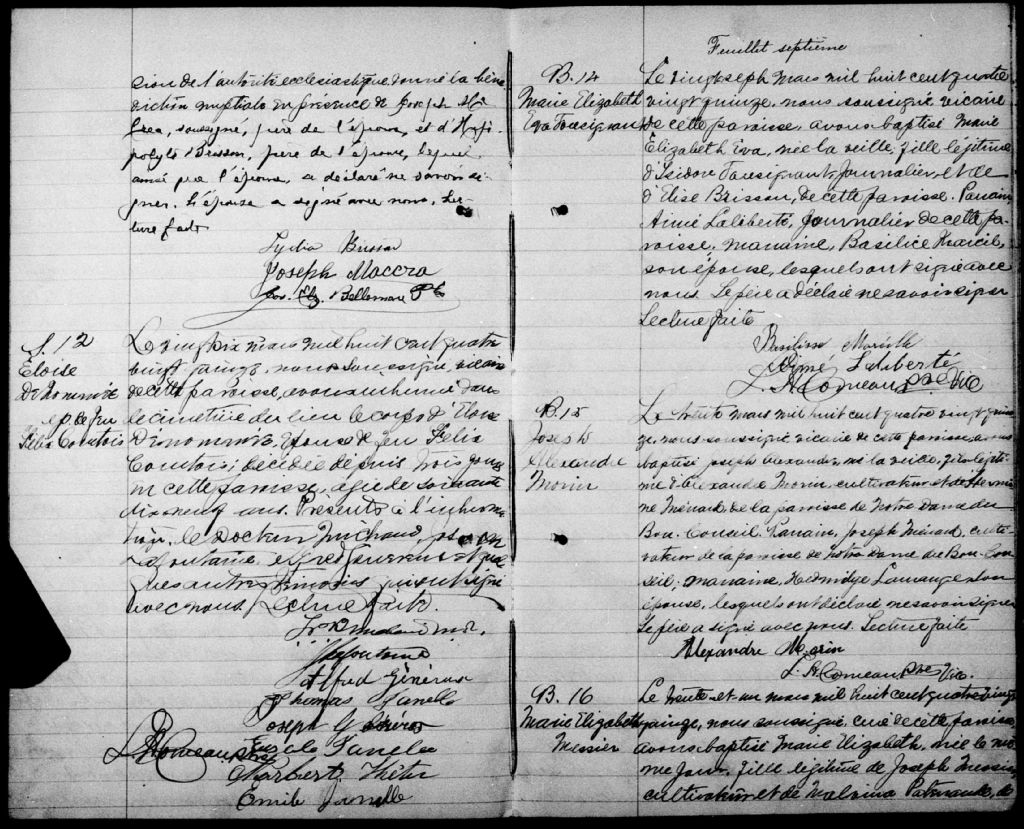 sion de l'autorité ecclesiastique donné la béné
diction nuptiale en présence de Joseph
soussigné, père de l'époux, et d'Hyp
polyte Brisson, père de l'épouse, lequel
ainsi que l'époux, a déclaré ne savoir si-
gner. L'épouse a signé avec nous. Lec-
ture faite
Lydia Brisson
Joseph Maccra
Jos. Elz. Bellemare Ptre
S. 12
Eloise
ép. de feu
Félix Comtois
Le vingt-six mars mil huit cent quatre
vingt quinze, nous soussigné vicaire
de cette paroisse, avons inhumé dans
le cimetière du lieu le corps d'Eloise
épouse de feu Félix
Comtois, décédée depuis trois jours
en cette paroisse, agée de soixante
dix neuf ans. Présents à l'inhuma
tion, le Docteur Michaud,
Lafontaine, et quel
ques autres qui ont signé
avec nous. Lecture faite.
Lafontaine
Alfred Généreux
Thomas Janelle
Joseph
L. A. Comeau, Ptre
Janelle
Emile Janelle
Feuillet septième
B. 14
Marie Elizabeth
Eva Forcignant
Le vingt sept mars mil huit cent quatre
vingt quinze, nous soussigné vicaire
de cette paroisse, avons baptisé Marie
Elizabeth Eva, née la veille, fille légitime
d'Isidore journalier, et de
d'Elise Brisson, de cette paroisse. Parrain,
Aimé Laliberté, journalier de cette pa-
roisse, marraine, Basilice
son épouse, lesquels ont signé avec
nous. Le père a déclaré ne savoir signer
Lecture faite
Basilisse
Aimé Laliberté
L. A. Comeau, Ptre Vic
B. 15
Joseph
Alexandre
Morin
Le trente mars mil huit cent quatre vingt quin
ze, nous soussigné vicaire de cette paroisse avons
baptisé joseph Alexandre, né la veille, fils légiti-
me d'Alexandre Morin, cultivateur et de Hermi
ne Ménard de la paroisse de Notre Dame du
Bon Conseil. Parrain, Joseph Ménard, culti-
vateur de la paroisse de Notre Dame du Bon Con-
seil; marraine, Hedwidge Lamange son
épouse, lesquels ont déclaré ne savoir signer
le père a signé avec nous. Lecture faite
Alexandre Morin
L. A. Comeau, Ptre Vic.
B. 16
Marie Elizabeth
Messier
Le trente et un mars mil huit cent quatre vingt
quinze, nous soussigné, curé de cette paroisse
avons baptisé Marie Elizabeth, née le mê
me jour, fille légitime de Joseph Messier
cultivateur et de Malvina Patenaude, de